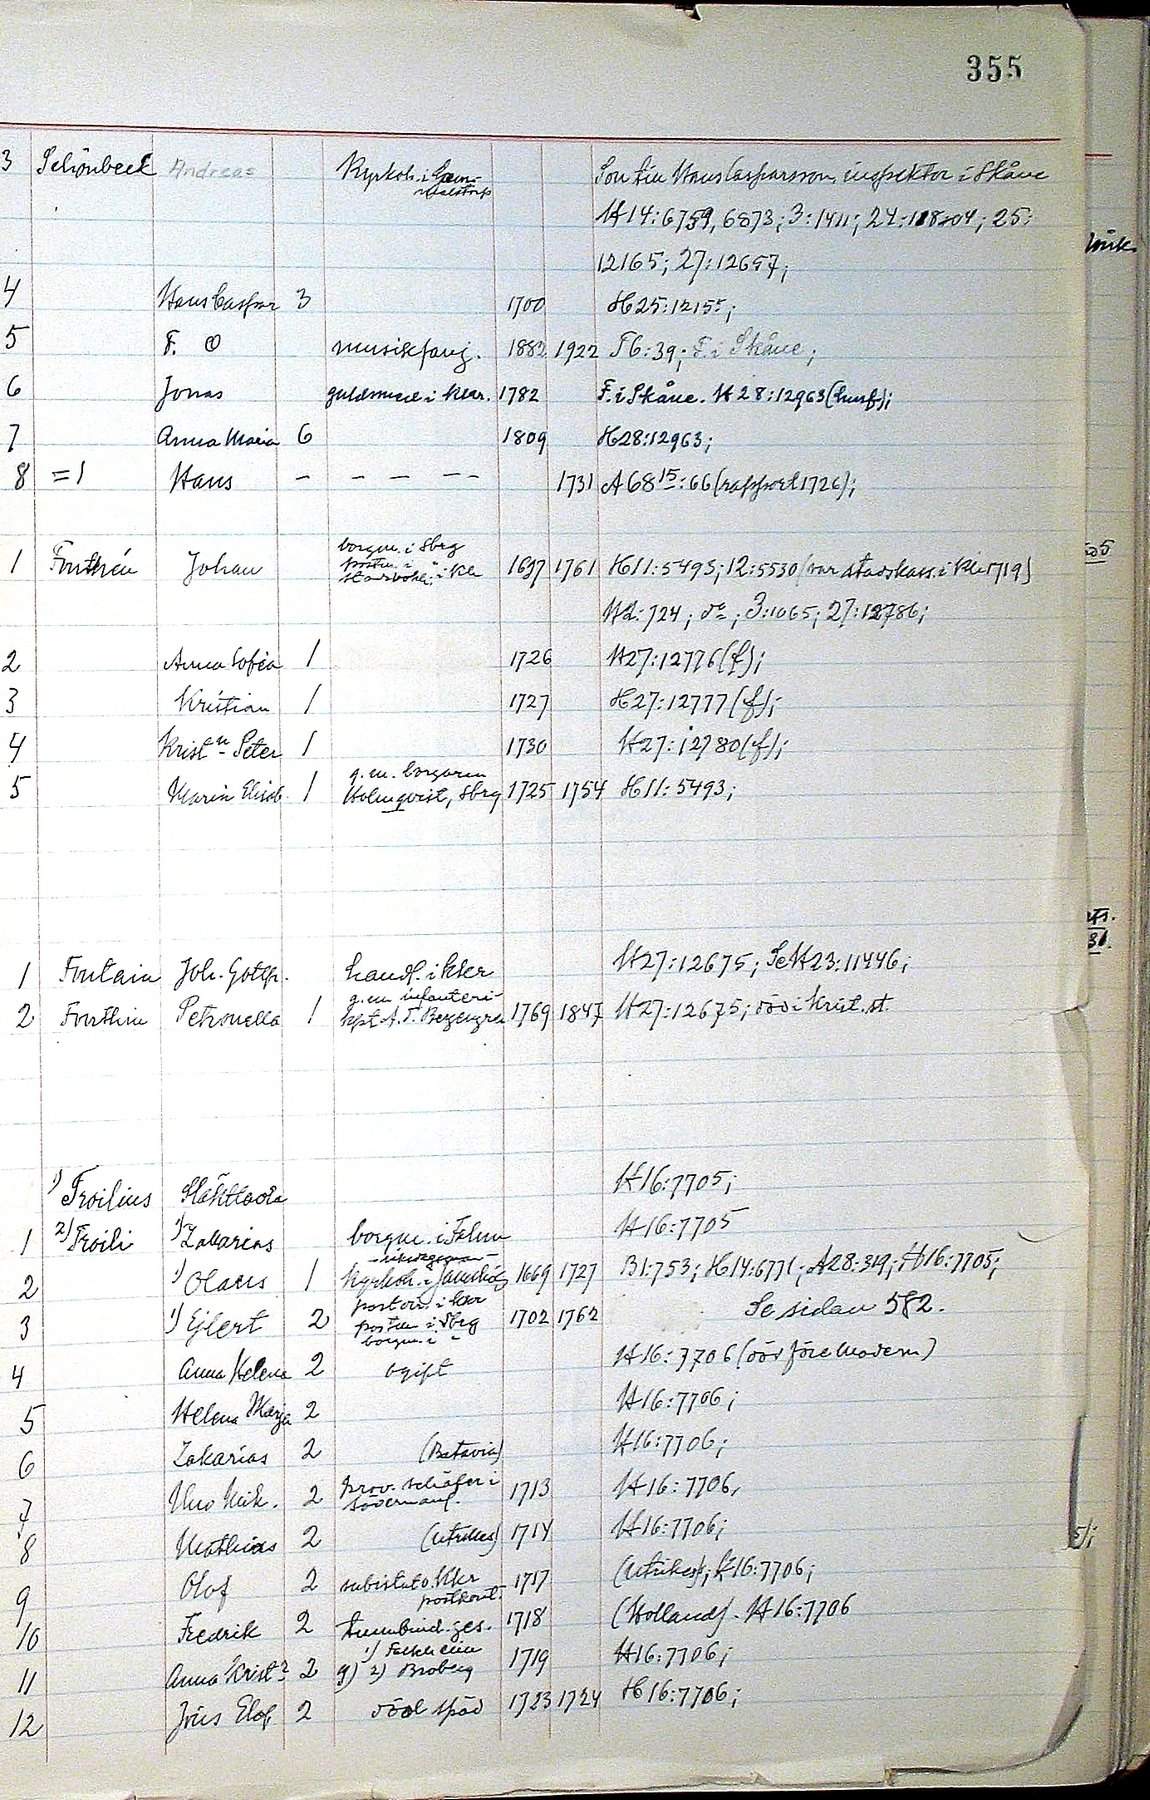 355
3 Schönbeck Andreas Kyrkoh. i Son till Hans Casparsson, inspektor i Skåne
H14:6759, 6873; 3:1411; 24:11804; 25:
12165; 27:12657;
4 Hans Caspar 3 1700 H25:12155;
5 F. O musikfanj. 1882 1922 T6:39; F. i Skåne;
6 Jonas guldsmed i Kkr. 1782 F. i Skåne. H28:12963 (husf);
7 Anna Maria 6 1809 H28:12963;
8 =1 Hans – – – – – 1731 A68 15:66 (rapport 1726);
borgm. i Sbrg
1 Fonthén Johan postm. i " i Kkr 1697 1761 H11:5493; 12:5530 (var stadskass. i Kkr 1719)
H2:724; do; 3:1065; 27:12786;
2 Anna Sofia 1 1726 H27:12776 (f);
3 Kristian 1 1727 H27:12777 (f);
4 Krist:n Peter 1 1730 H27:12780 (f);
g. m. borgaren
5 Maria Elisab. 1 Holmqvist, Sbrg 1725 1754 H11:5493;
1 Fontain Joh. Gottfr. handl. i Kkr H27:12675; Se H23:11446;
g. m. infanteri-
2 Fonthin Petronella 1 kpt A. F. 1769 1847 H27:12675; död i Krist.st.
1) Froilius Släkttavla H16:7705;
1 2) Troili 1) Zakarias borgm. i Falun H16:7705
2 1) Olaus 1 Kyrkoh. i 1669 1727 B1:753; H14:6771; A28:319; H16:7705;
postinv. i Kkr
3 1) Ejlert 2 postm i Sbrg 1702 1762 Se sidan 582.
borgm. i "
4 Anna Helena 2 ogift H16:7706 (död före modern)
5 Helena Marja 2 H16:7706;
6 Zakarias 2 (Batavia) H16:7706;
7 Uno Nik. 2 prov. schäfer i 1713 H16:7706,
Södermanl.
8 Mathias 2 (utrikes) 1714 H16:7706;
9 Olof 2 1717 (utrikes); H16:7706;
postkont.
10 Fredrik 2 tunnbind. ges. 1718 (Holland). H16:7706
1)
11 Anna Krist. 2 g) 2) Broberg 1719 H16:7706;
12 Jöns Elof 2 död späd 1723 1724 H16:7706;